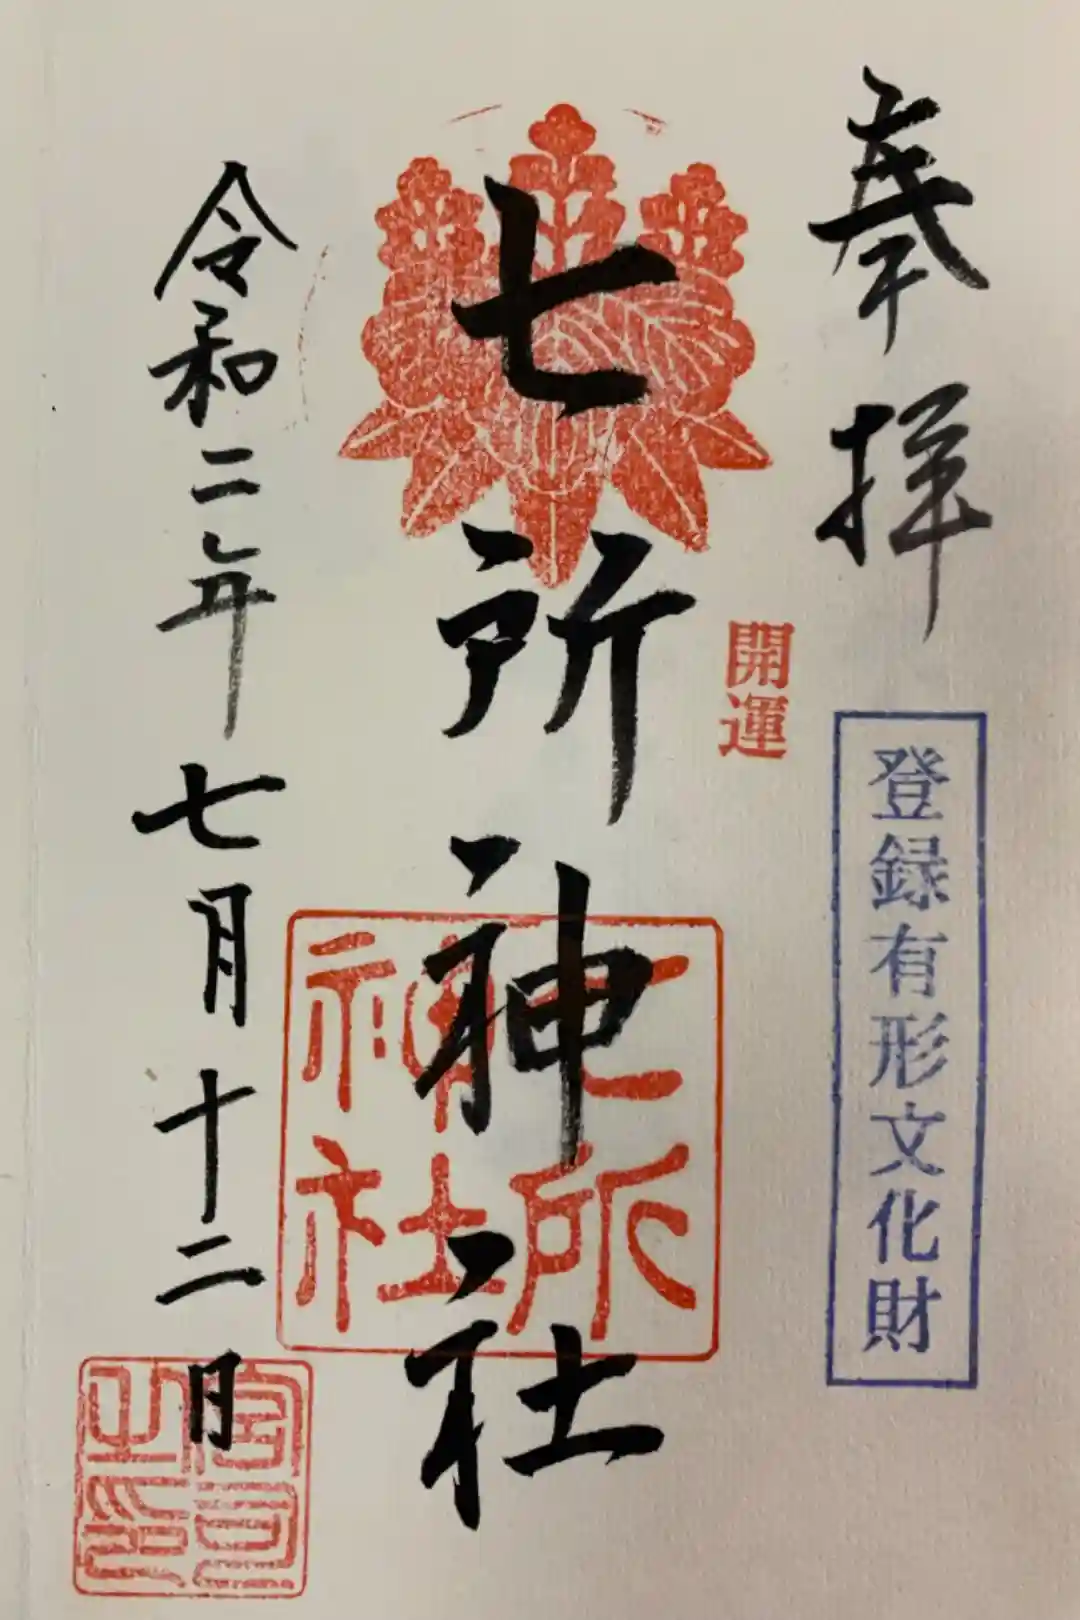 奉拝
登録有形文化財
開運
七所神社
七所神社
令和二年七月十二日
宮司之印